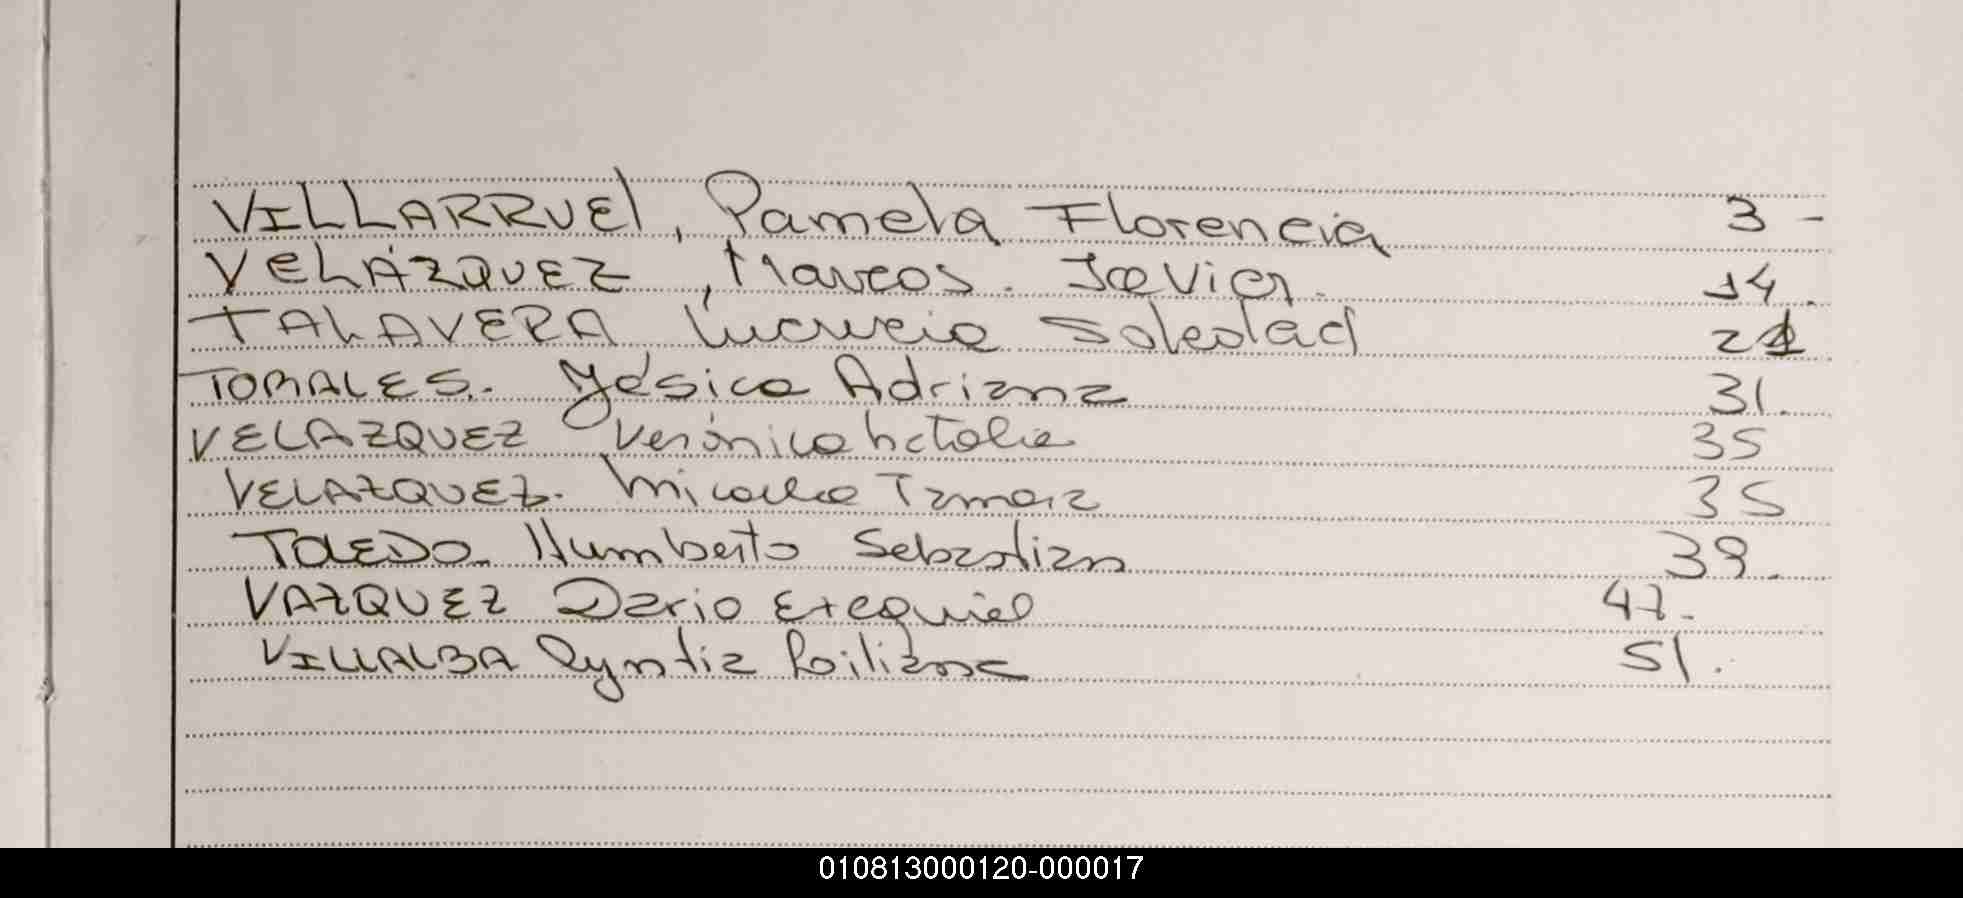 VILLARRUEl, Pamela Florencia 3-
VELÁZQUEZ, Marcos. Javier. 14.
TALAVERA Lucrecia Soledad 21
TORALES. Yésica Adriana 31.
VELAZQUEZ Verónica Natalia 35
VELAZQUEZ. Micaela Tamara 35
TOLEDO. Humberto Sebastian 39.
VAZQUEZ Dario Exequiel 47-
VILLALBA Cyntia Liliana 51.
010813000120-000017